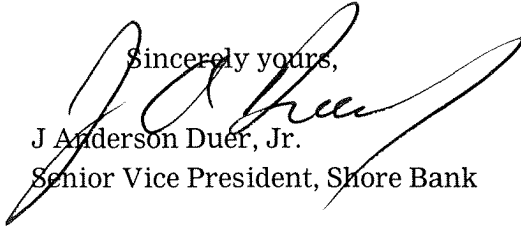 Sincerely yours,
J A Duer
J Anderson Duer, Jr.
Senior Vice President, Shore Bank